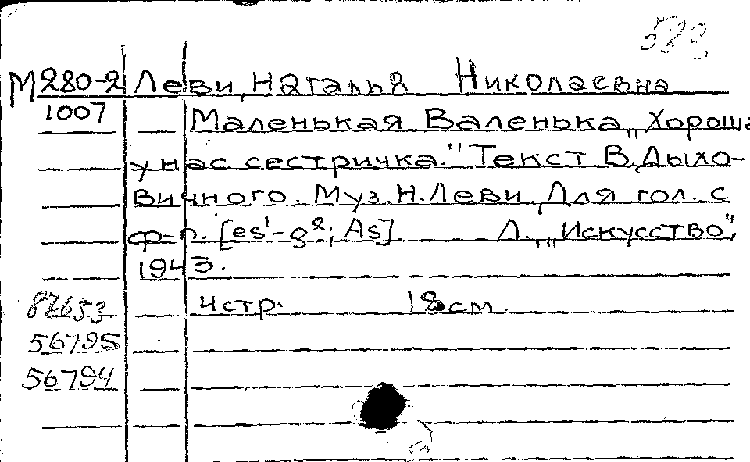 М280-2 Леви, Наталья Николаевна
1007 Маленькая Валенька „Хороша
у нас сестричка." Текст В. Дыхо-
вичного. Муз. Н. Леви. Для гол. с
ф-п. [es¹-g²; As] Л., „Искусство",
1943.
87653 4 стр. 18 см
56795
56794